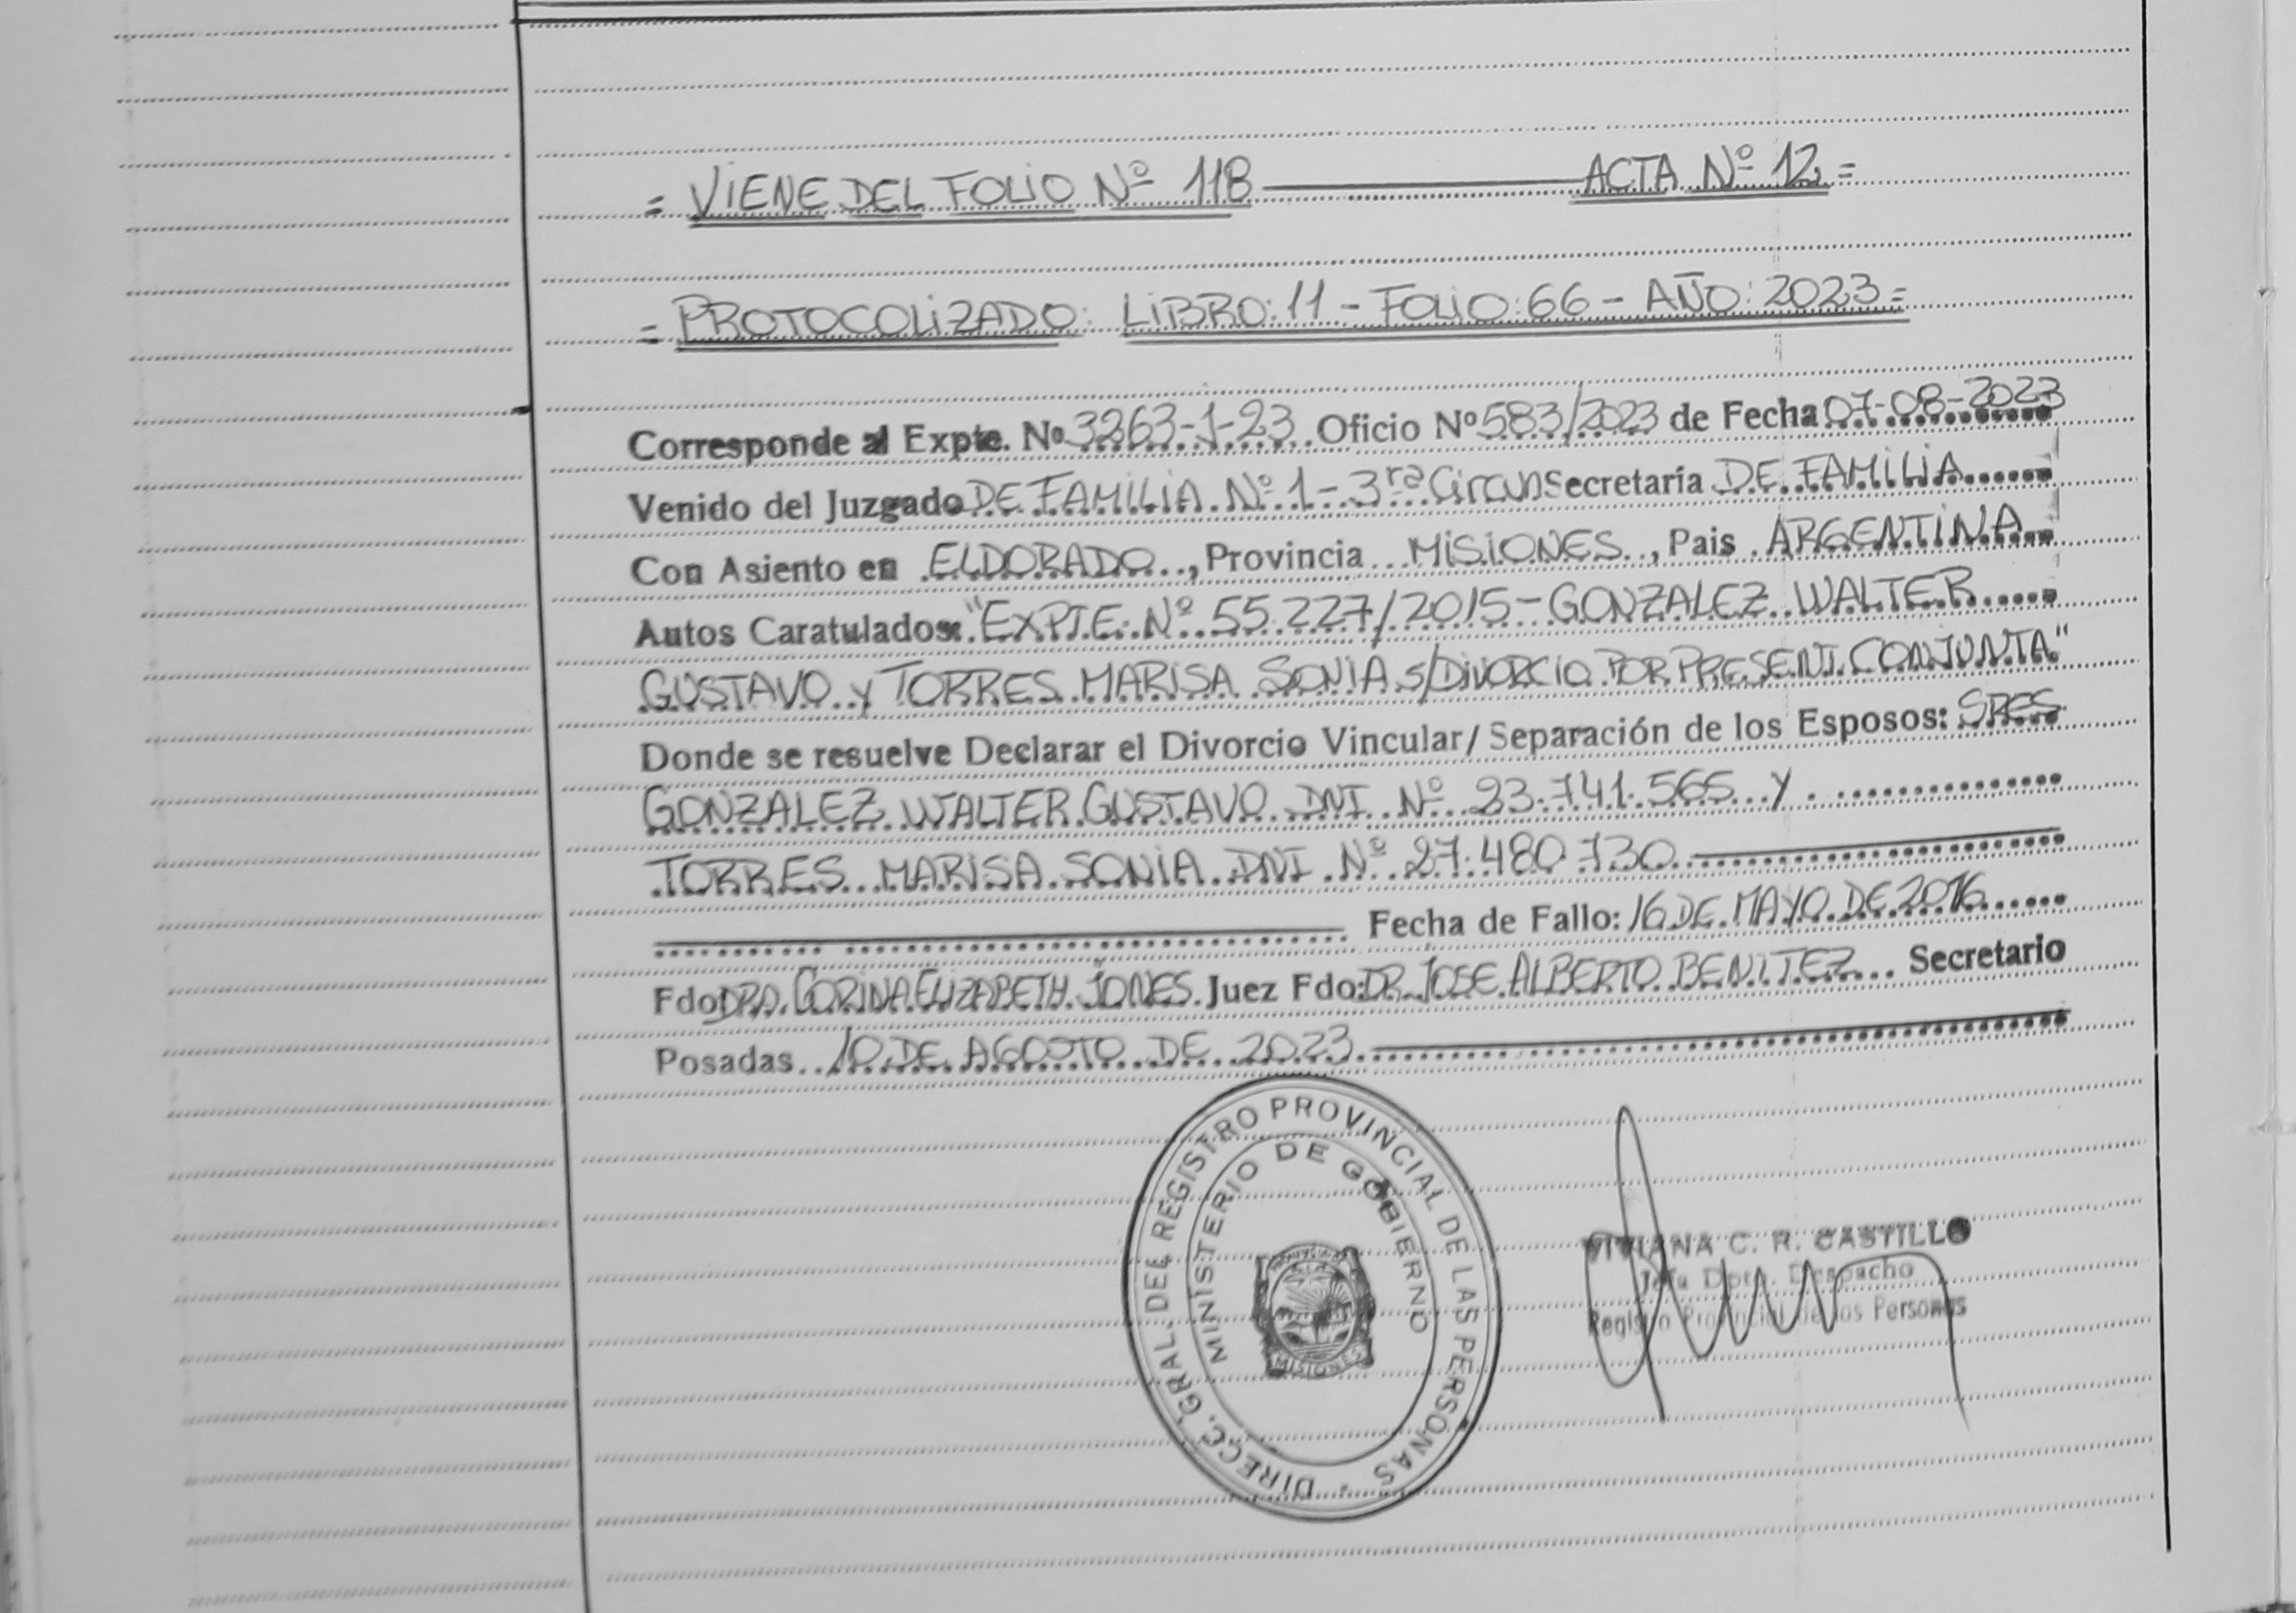 = VIENE DEL FOLIO Nº 118 ——— ACTA Nº 12 =
= PROTOCOLIZADO: LIBRO: 11 - FOLIO: 66 - AÑO: 2023 =
Corresponde al Expte. Nº 3263-1-23 Oficio Nº 583/2023 de Fecha 07-08-2023
Venido del Juzgado DE FAMILIA Nº 1 - 3ra Circun Secretaría DE FAMILIA
Con Asiento en ELDORADO, Provincia MISIONES, Pais ARGENTINA
Autos Caratulados: "EXPTE. Nº 55.227/2015 - GONZALEZ WALTER
GUSTAVO y TORRES MARISA SONIA s/DIVORCIO POR PRESENT. CONJUNTA"
Donde se resuelve Declarar el Divorcio Vincular/ Separación de los Esposos: SRES.
GONZALEZ WALTER GUSTAVO DNI Nº 23.741.565 y
TORRES MARISA SONIA DNI Nº 27.480.730
Fecha de Fallo: 16 DE MAYO DE 2016
Fdo: DRA. CORINA ELIZABETH JONES Juez Fdo: DR. JOSE ALBERTO BENITEZ Secretario
Posadas 10 DE AGOSTO DE 2023
DIRECC. GRAL. DEL REGISTRO PROVINCIAL DE LAS PERSONAS
MINISTERIO DE GOBIERNO
MISIONES
VIVIANA C. R. CASTILLO
Jefa Dpto. Despacho
Registro Provincial de las Personas